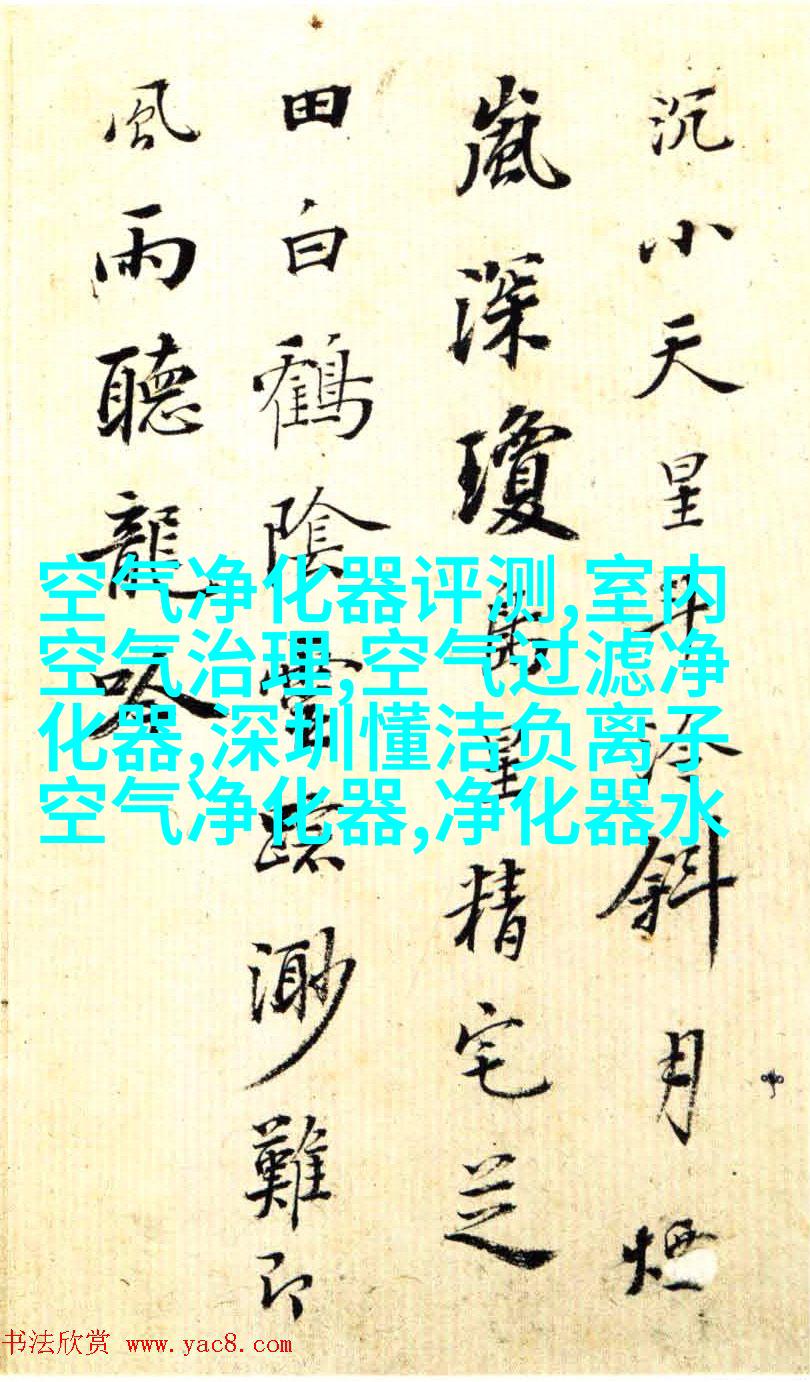 沉小天星斗冷斜月煙
嵐深瓊星精宅芝
田白鶴陰踪渺難即
風雨聽龍吟
空气净化器评测,室内
空气治理,空气过滤净
化器,深圳懂洁负离子
空气净化器,净化器水
书法欣赏 www.yac8.com